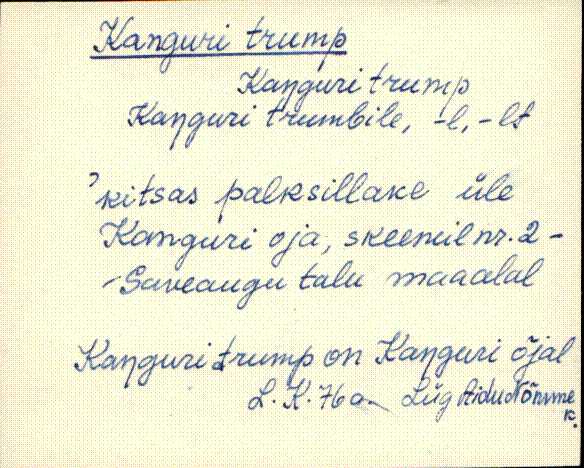 Kanguri trump
Kaŋguri trump
Kaŋguri trumbile, -l, -lt
'kitsas palksillake üle
Kanguri oja, skeemil nr. 2 -
- Saveaugu talu maaalal
Kaŋguri trump on Kaŋguri õjal
L. K. 76 a. Lüg Aidu Nõmme
k.